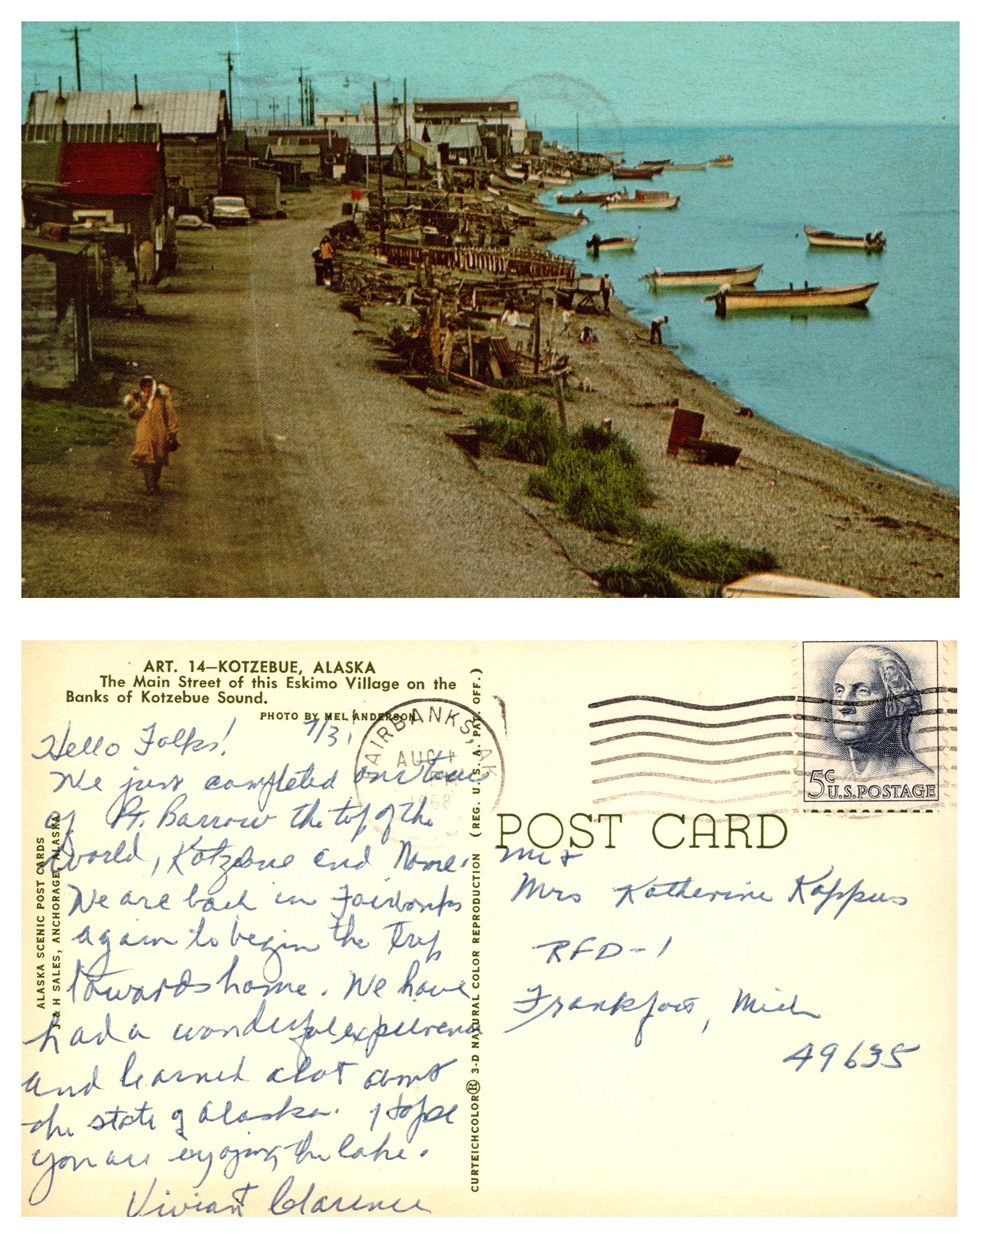 ART. 14—KOTZEBUE, ALASKA
The Main Street of this Eskimo Village on the
Banks of Kotzebue Sound.
PHOTO BY MEL ANDERSON
7/31
Hello Folks!
We just completed our tour
of Pt. Barrow the top of the
World, Kotzebue and Nome.
We are back in Fairbanks
again to begin the trip
towards home. We have
had a wonderful experience
and learned alot about
the state of Alaska. I hope
you are enjoying the lake.
Vivian & Clarence
ALASKA SCENIC POST CARDS
J & H SALES, ANCHORAGE, ALASKA
CURTEICHCOLOR® 3-D NATURAL COLOR REPRODUCTION (REG. U.S.A. PAT. OFF.)
FAIRBANKS, AK
AUG 1
1968
5c
U.S. POSTAGE
POST CARD
Mr &
Mrs Katherine Kappus
RFD-1
Frankfort, Mich
49635